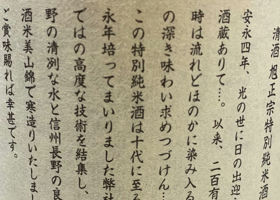 清酒 旭正宗特別純米酒
安永四年、光の世に日の出迎
酒蔵ありて…。以来、二百有
時は流れどほのかに染み入る
の深き味わい求めつづけん…
この特別純米酒は十代に至る
永年培ってまいりました弊社
ではの高度な技術を結集し、
野の清冽な水と信州長野の良
酒米美山錦で寒造りいたしまし
ご賞味賜れば幸甚です。